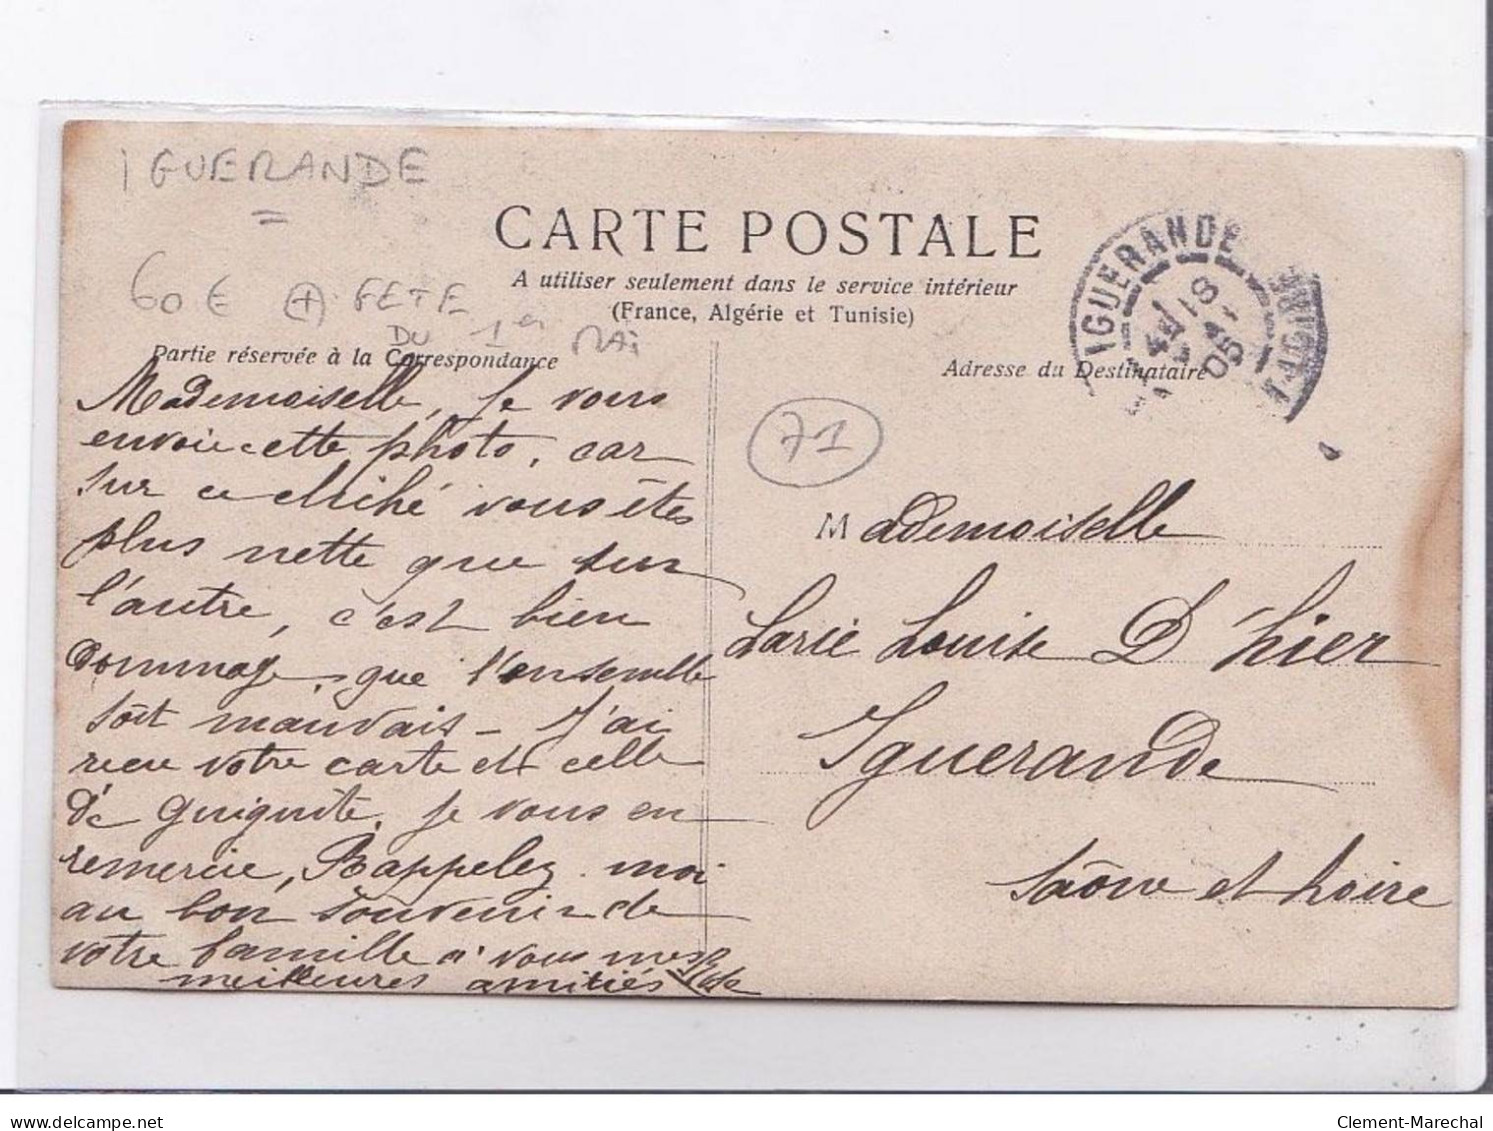 IGUERANDE
CARTE POSTALE
A utiliser seulement dans le service intérieur
(France, Algérie et Tunisie)
60 € + FETE
DU 1er MAI
Partie réservée à la Correspondance
Adresse du Destinataire
IGUERANDE
18
05
71
Mademoiselle, Je vous
envoie cette photo, car
sur ce cliché vous êtes
plus nette que sur
l'autre, c'est bien
dommage que l'ensemble
soit mauvais - J'ai
reçu votre carte et celle
de Guiguite, je vous en
remercie, Rappelez moi
au bon souvenir de
votre famille à vous mes
meilleures amitiés
Mademoiselle
Marie Louise D'hier
Iguerande
Saône et Loire
delcampe.net
Clement-Marechal